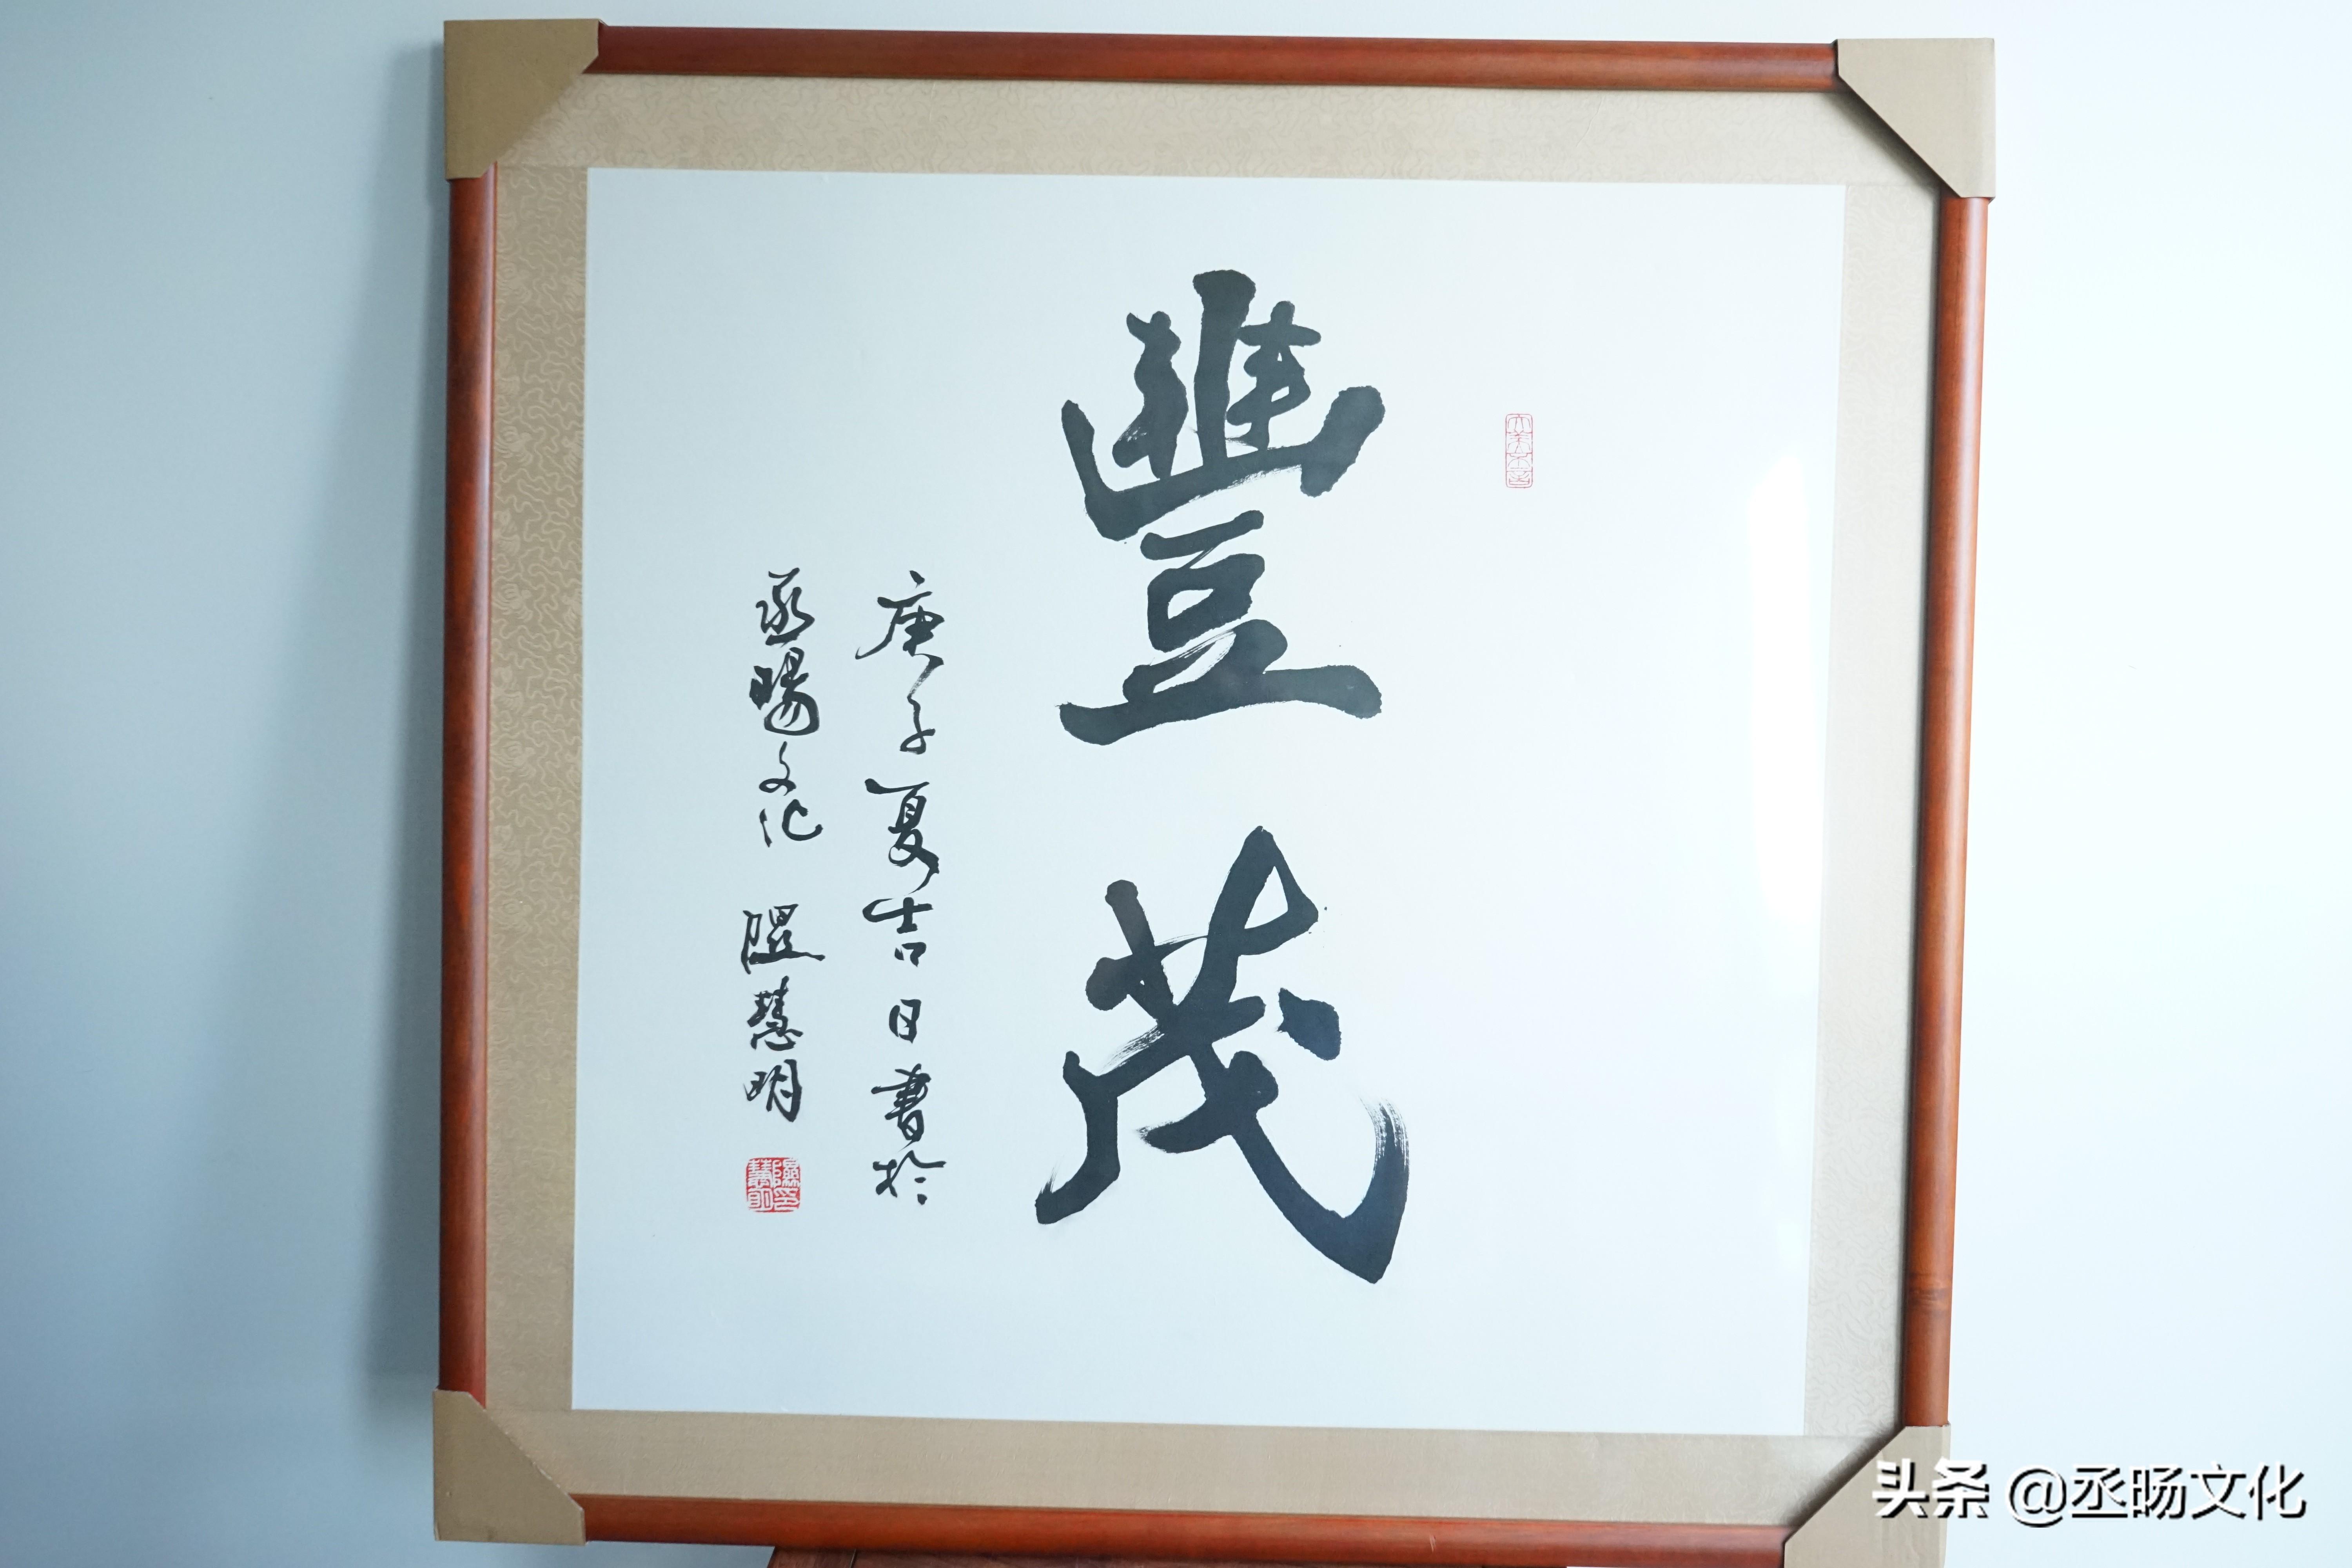 豐茂
庚子夏吉日書於
丞暘文化 隰慧明
头条 @丞旸文化